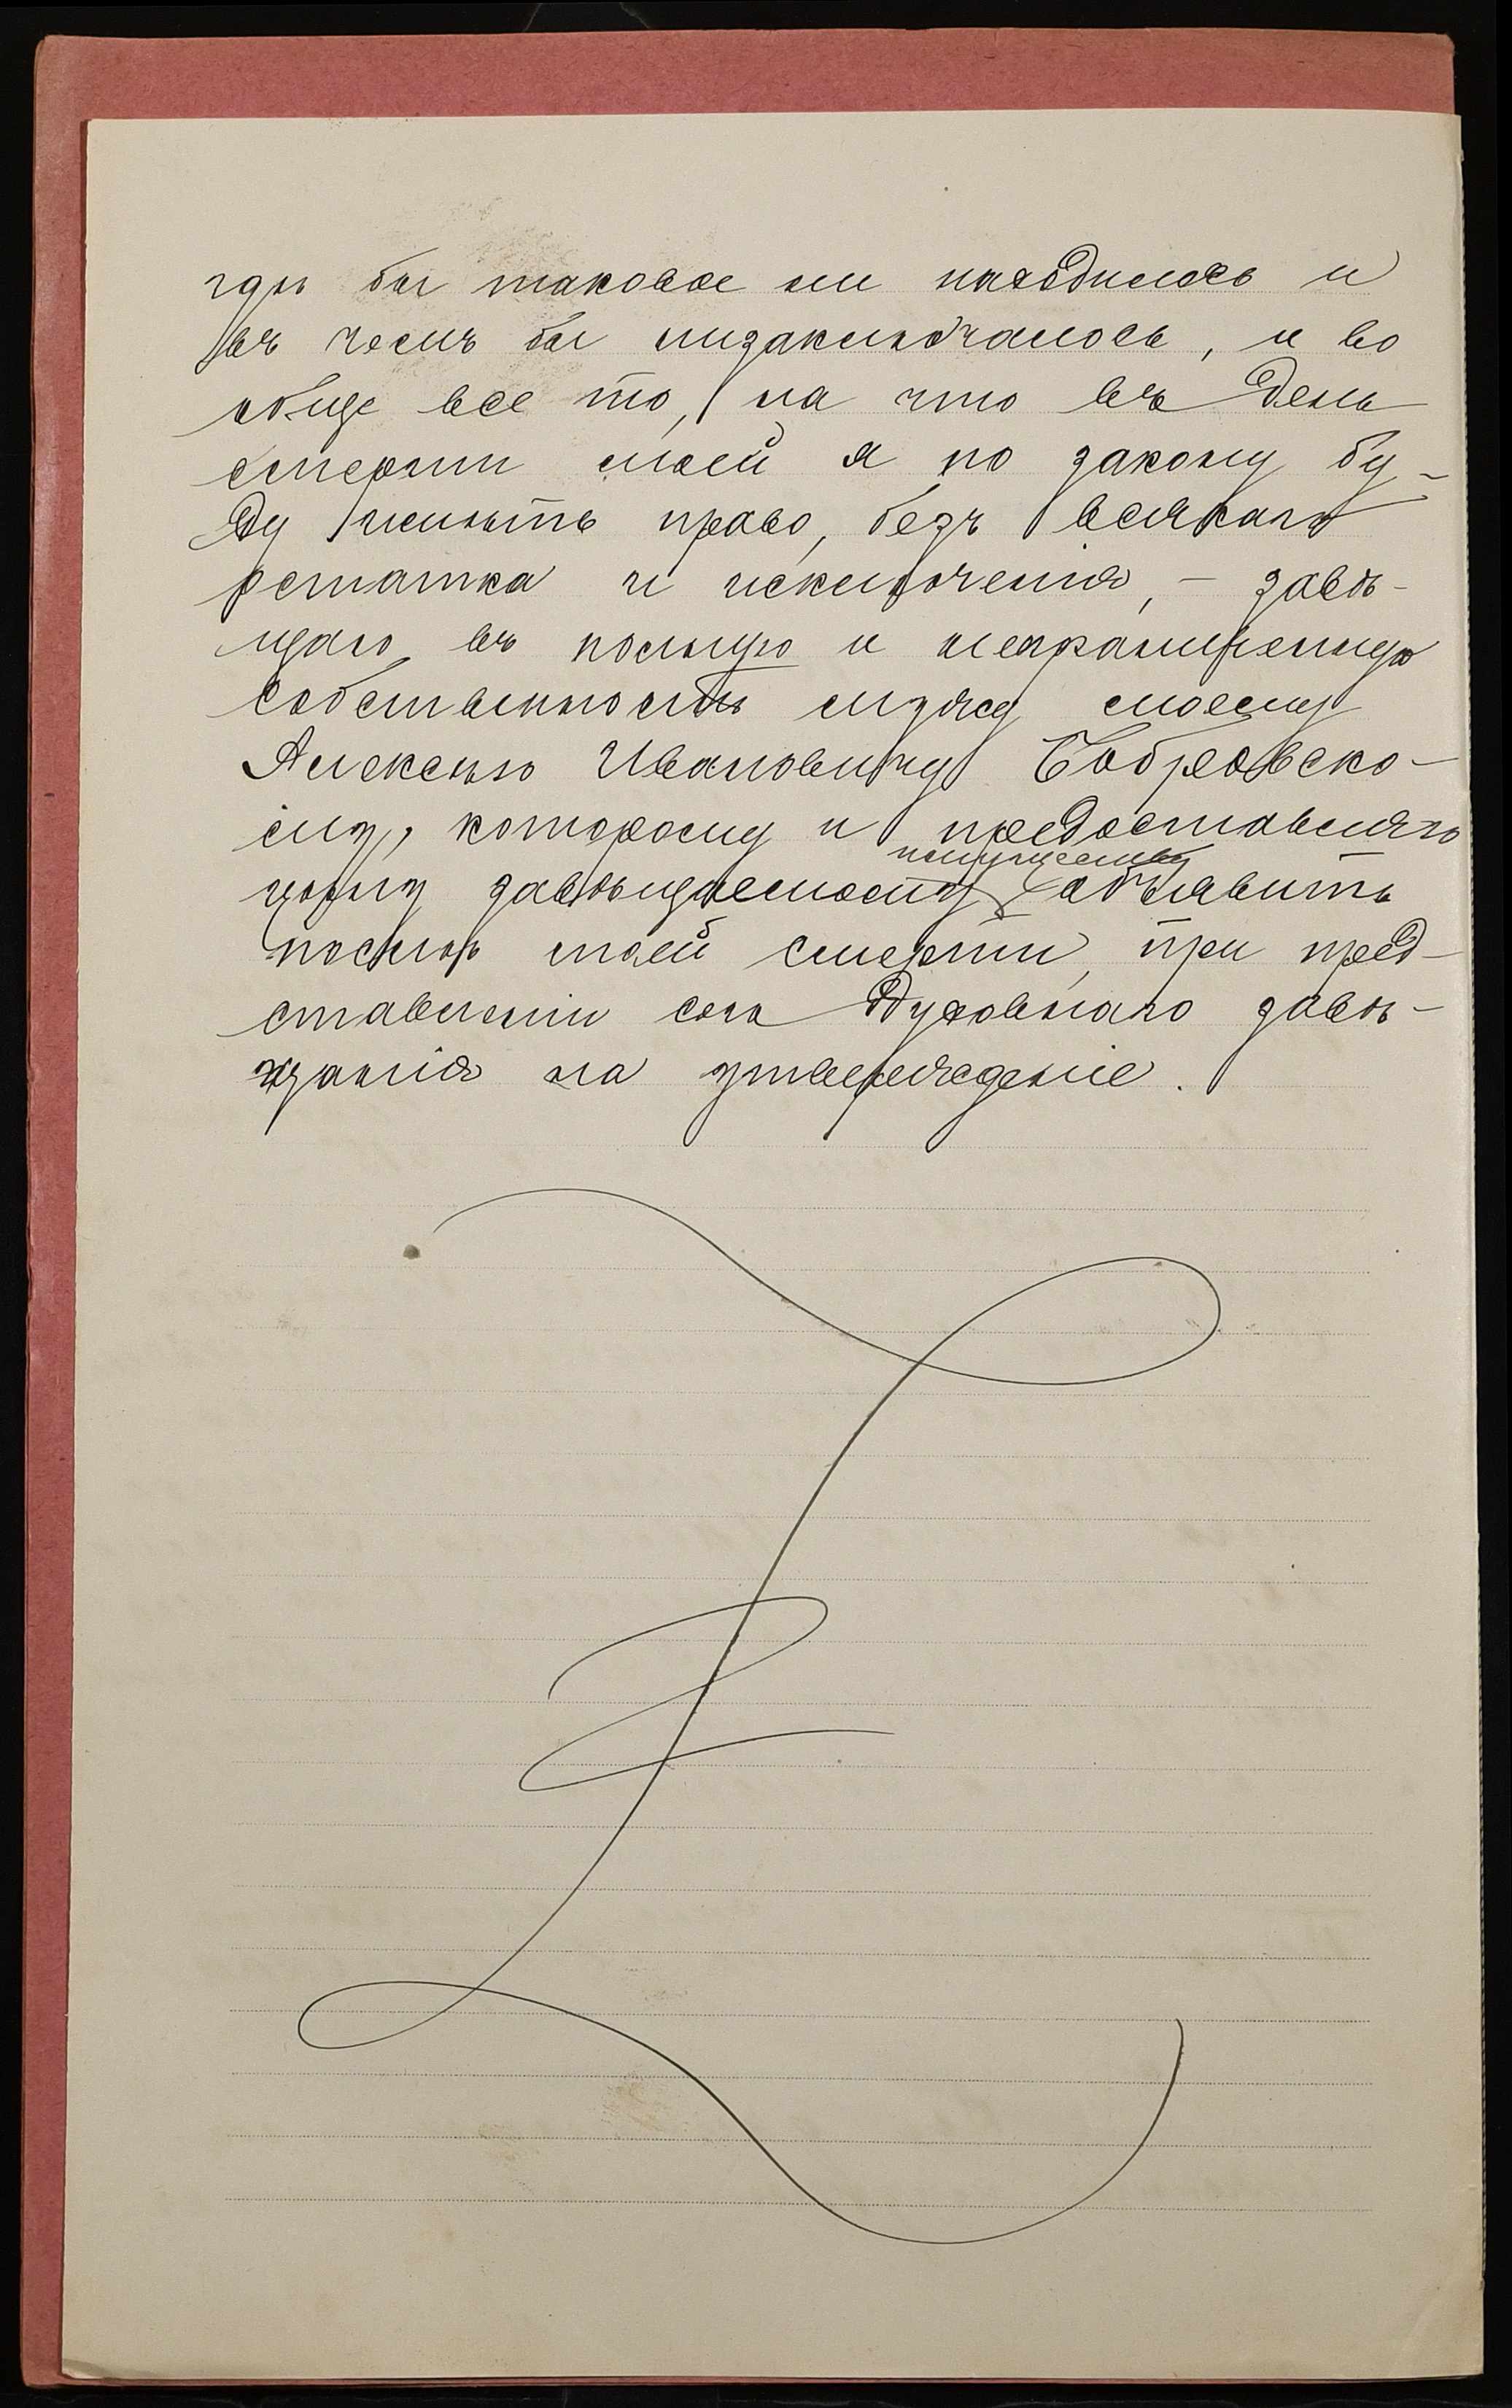 гдѣ бы таковое ни находилось и
въ чемъ бы низаключалось, и во
обще все то, на что въ день
смерти моей я по закону бу-
ду имѣть право, безъ всякаго
остатка и исключенія, - завѣ-
щаю въ полную и неограниченную
собственность мужу моему
Алексѣю Ивановичу Бобровско-
му, которому и предоставляю
имуществу
цѣну завѣщаемому объявить
послѣ моей смерти, при пред-
ставленіи сего духовнаго завѣ-
щанія на утвержденіе.